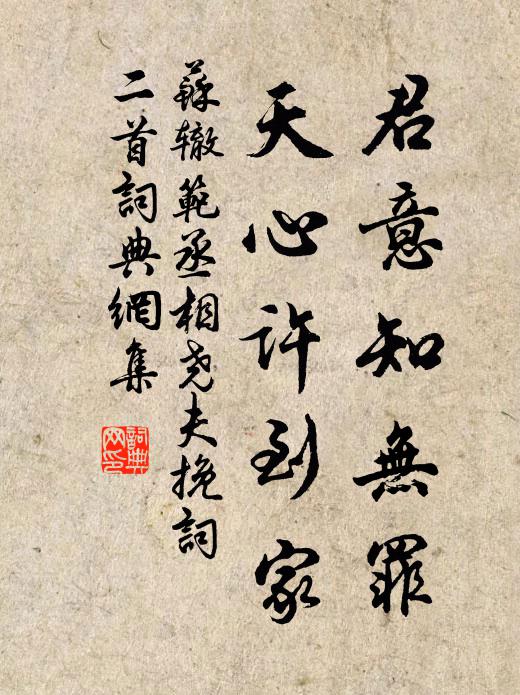 君意知無罪
天心許到家
蘇辙範丞相尧夫挽詞
二首詞典網集
詞典
网印